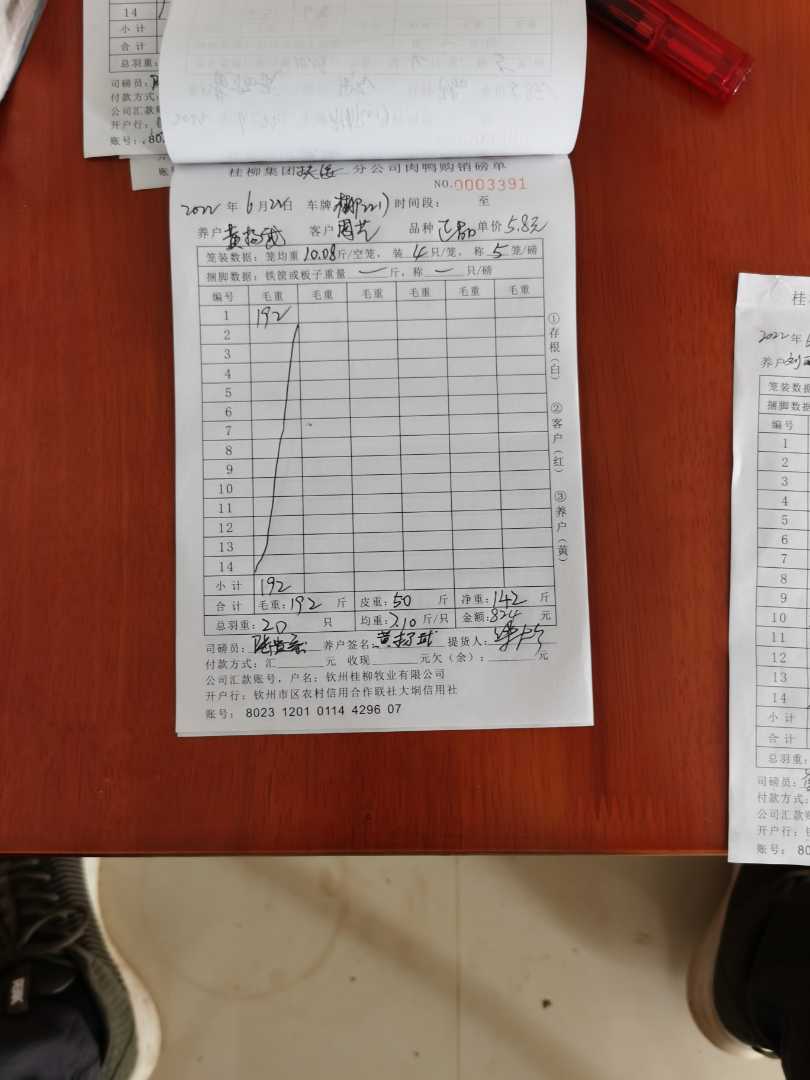 14
小计
合计
总羽重:
司磅员:
付款方式:
公司汇款账
开户行:
账号: 80
桂柳集团 分公司肉鸭购销磅单
NO.0003391
2022年6月22日 车牌 时间段: 至
养户 黄扬武 客户 周芝 品种 单价5.8元
笼装数据: 笼均重10.08斤/空笼, 装4只/笼, 称5笼/磅
捆脚数据: 铁筐或板子重量 一 斤, 称 一 只/磅
编号 毛重 毛重 毛重 毛重 毛重 毛重
1 192
2
3
4
5
6
7
8
9
10
11
12
13
14
小计 192
合计 毛重:192斤 皮重:50斤 净重:142斤
总羽重:20只 均重:7.10斤/只 金额:824元
司磅员: 养户签名:黄扬武 提货人:
付款方式: 汇 元 收现 元欠(余): 元
公司汇款账号, 户名: 钦州桂柳牧业有限公司
开户行: 钦州市区农村信用合作联社大垌信用社
账号: 8023 1201 0114 4296 07
①存根(白)
②客户(红)
③养户(黄)
桂
2022年
养户刘
笼装数据
捆脚数据
编号
1
2
3
4
5
6
7
8
9
10
11
12
13
14
小计
合计
总羽重:
司磅员:
付款方式:
公司汇款账
开户行:
账号: 80